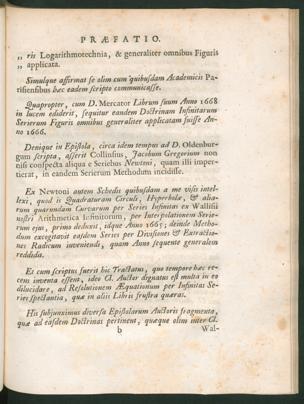 PRÆFATIO.
„ ris Logarithmotechnia, & generaliter omnibus Figuris
„ applicata.
Simulque affirmat se olim cum quibusdam Academicis Pa-
risiensibus hæc eadem scripto communicasse.
Quapropter, cum D. Mercator Librum suum Anno 1668
in lucem ediderit, sequitur eandem Doctrinam Infinitarum
Serierum Figuris omnibus generaliter applicatam fuisse An-
no 1666.
Denique in Epistola, circa idem tempus ad D. Oldenbur-
gum scripta, asserit Collinsius, Jacobum Gregorium non
nisi conspecta aliqua e Seriebus Neutoni, quam illi imper-
tierat, in eandem Serierum Methodum incidisse.
Ex Newtoni autem Schedis quibusdam a me visis intel-
lexi, quod is Quadraturam Circuli, Hyperbolæ, & alia-
rum quarundam Curvarum per Series Infinitas ex Wallisii
nostri Arithmetica Infinitorum, per Interpolationem Serie-
rum ejus, primo deduxit, idque Anno 1665; deinde Metho-
dum excogitavit easdem Series per Divisiones & Extractio-
nes Radicum inveniendi, quam Anno sequente generalem
reddidit.
Et cum scriptus fuerit hic Tractatus, quo tempore hæc re-
cens inventa essent, ideo Cl. Auctor dignatus est multa in eo
dilucidare, ad Resolutionem Æquationum per Infinitas Se-
ries spectantia, quæ in aliis Libris frustra quæras.
His subjunximus diversa Epistolarum Auctoris fragmenta,
quæ ad easdem Doctrinas pertinent, quæque olim inter Cl.
b Wal-